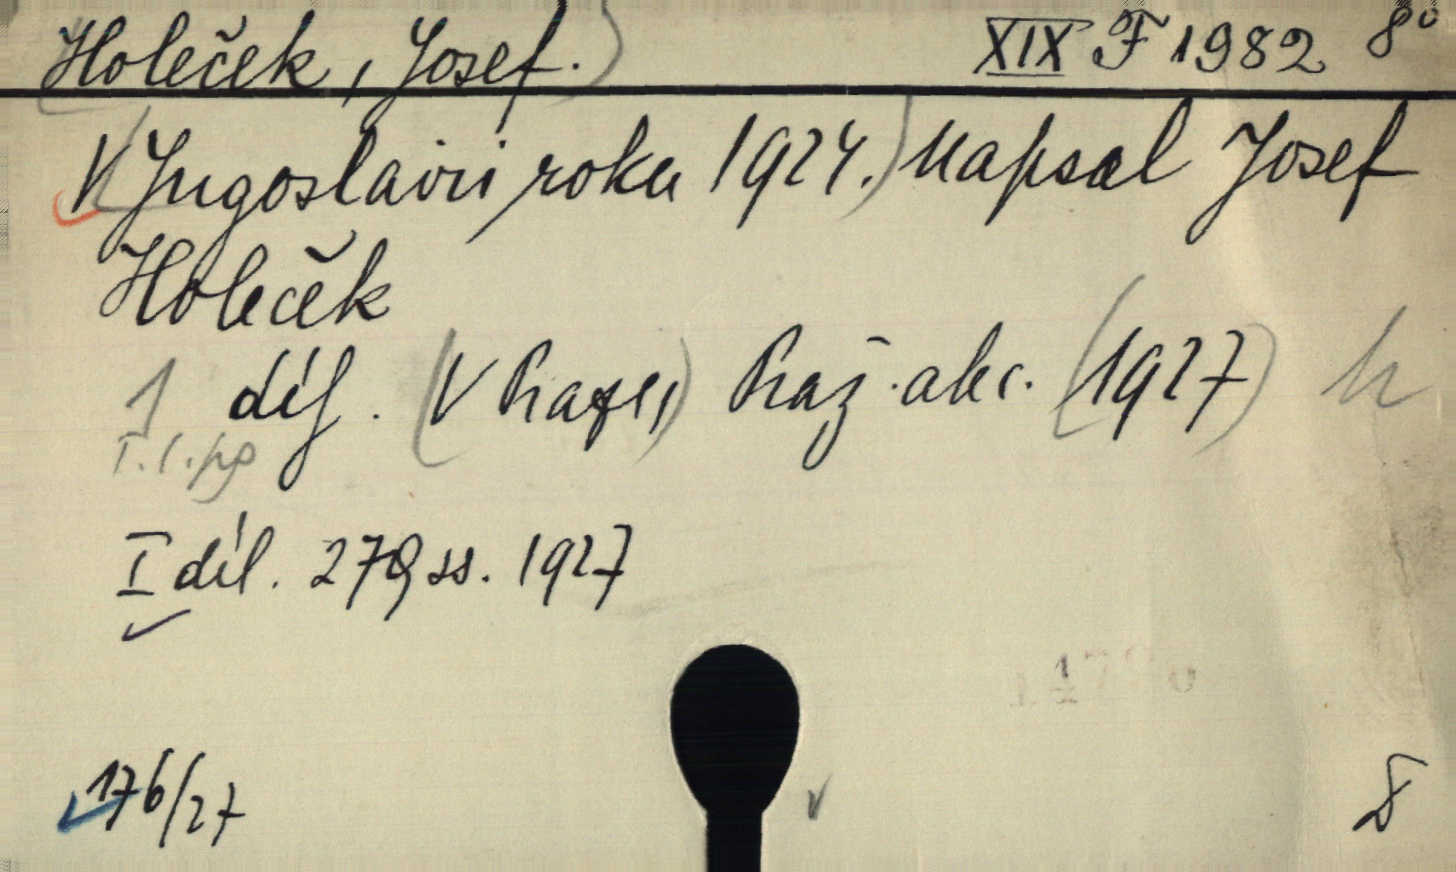 Holeček, Josef.) XIX F 1982 8°
V (Jugoslavii roku 1924.) Napsal Josef
Holeček
1 díl. (V Praze,) Praž. akc. (1927) h
I díl. 279 ss. 1927
176/27